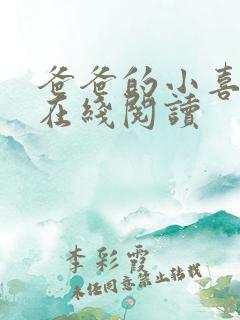 爸爸的小喜
在綫閱讀
李彩霞
未经同意禁止转载